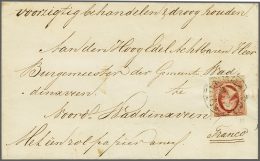 voorzigtig behandelen & droog houden
Aan den HoogEdel Achtbaren Heer
Burgemeester der Gemeente Wad
dinxveen te
Noord Waddinxveen
Franco
Met een rol papier